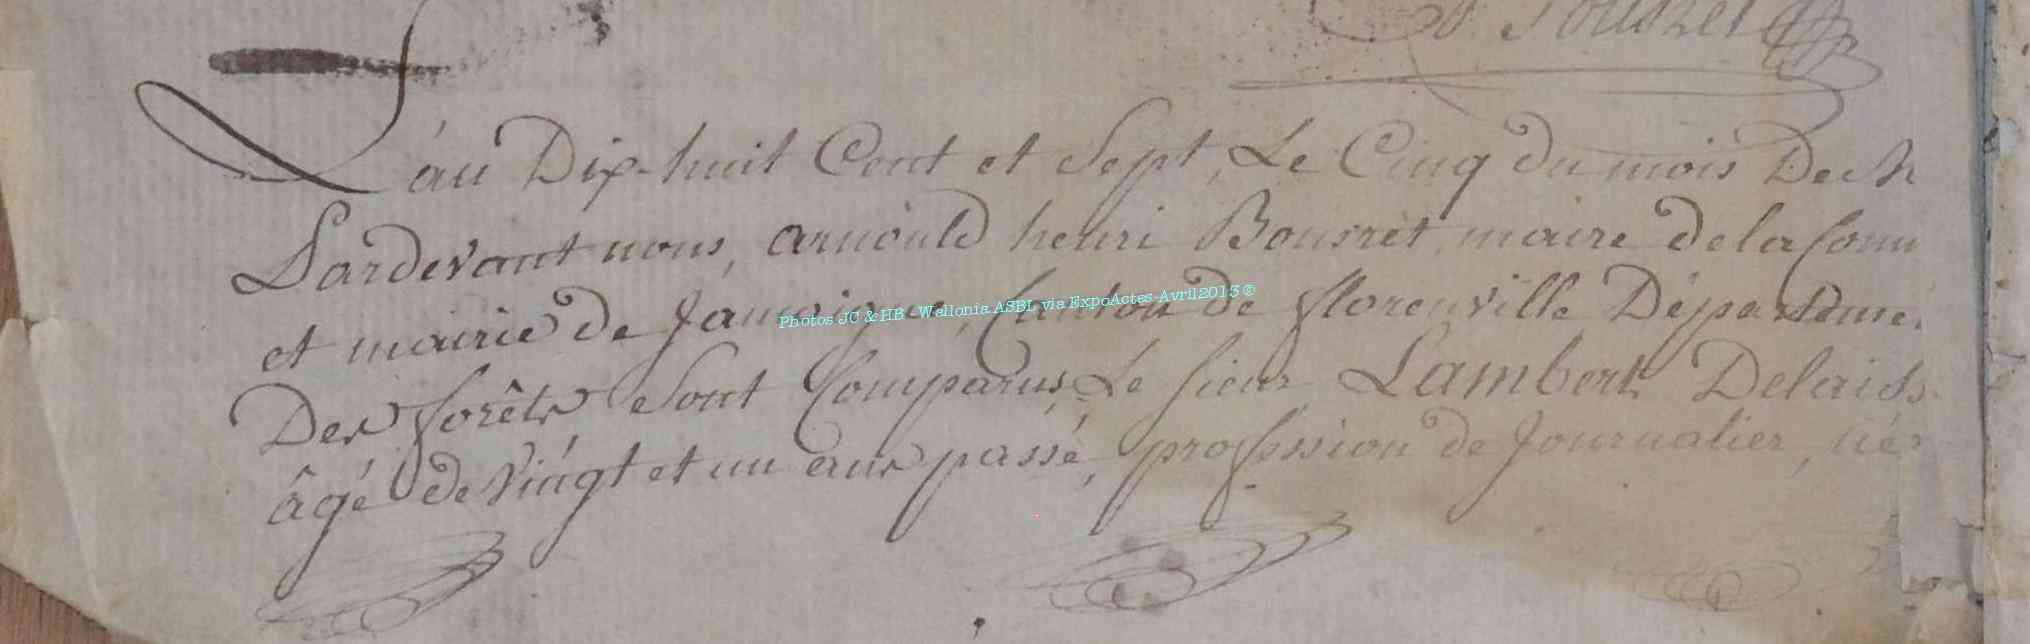 Bousret
L'an Dix-huit Cent et Sept, Le Cinq du mois De
Pardevant nous, arnould henri Bousret, maire de la Com
et mairie de Jamoigne, Canton de florenville Département
Des forêts Sont Comparus Le sieur Lambert Delaiss
âgé de vingt et un ans passé, profession de Journalier, né
Photos JC & HB - Wallonia ASBL via ExpoActes Avril2013 ©